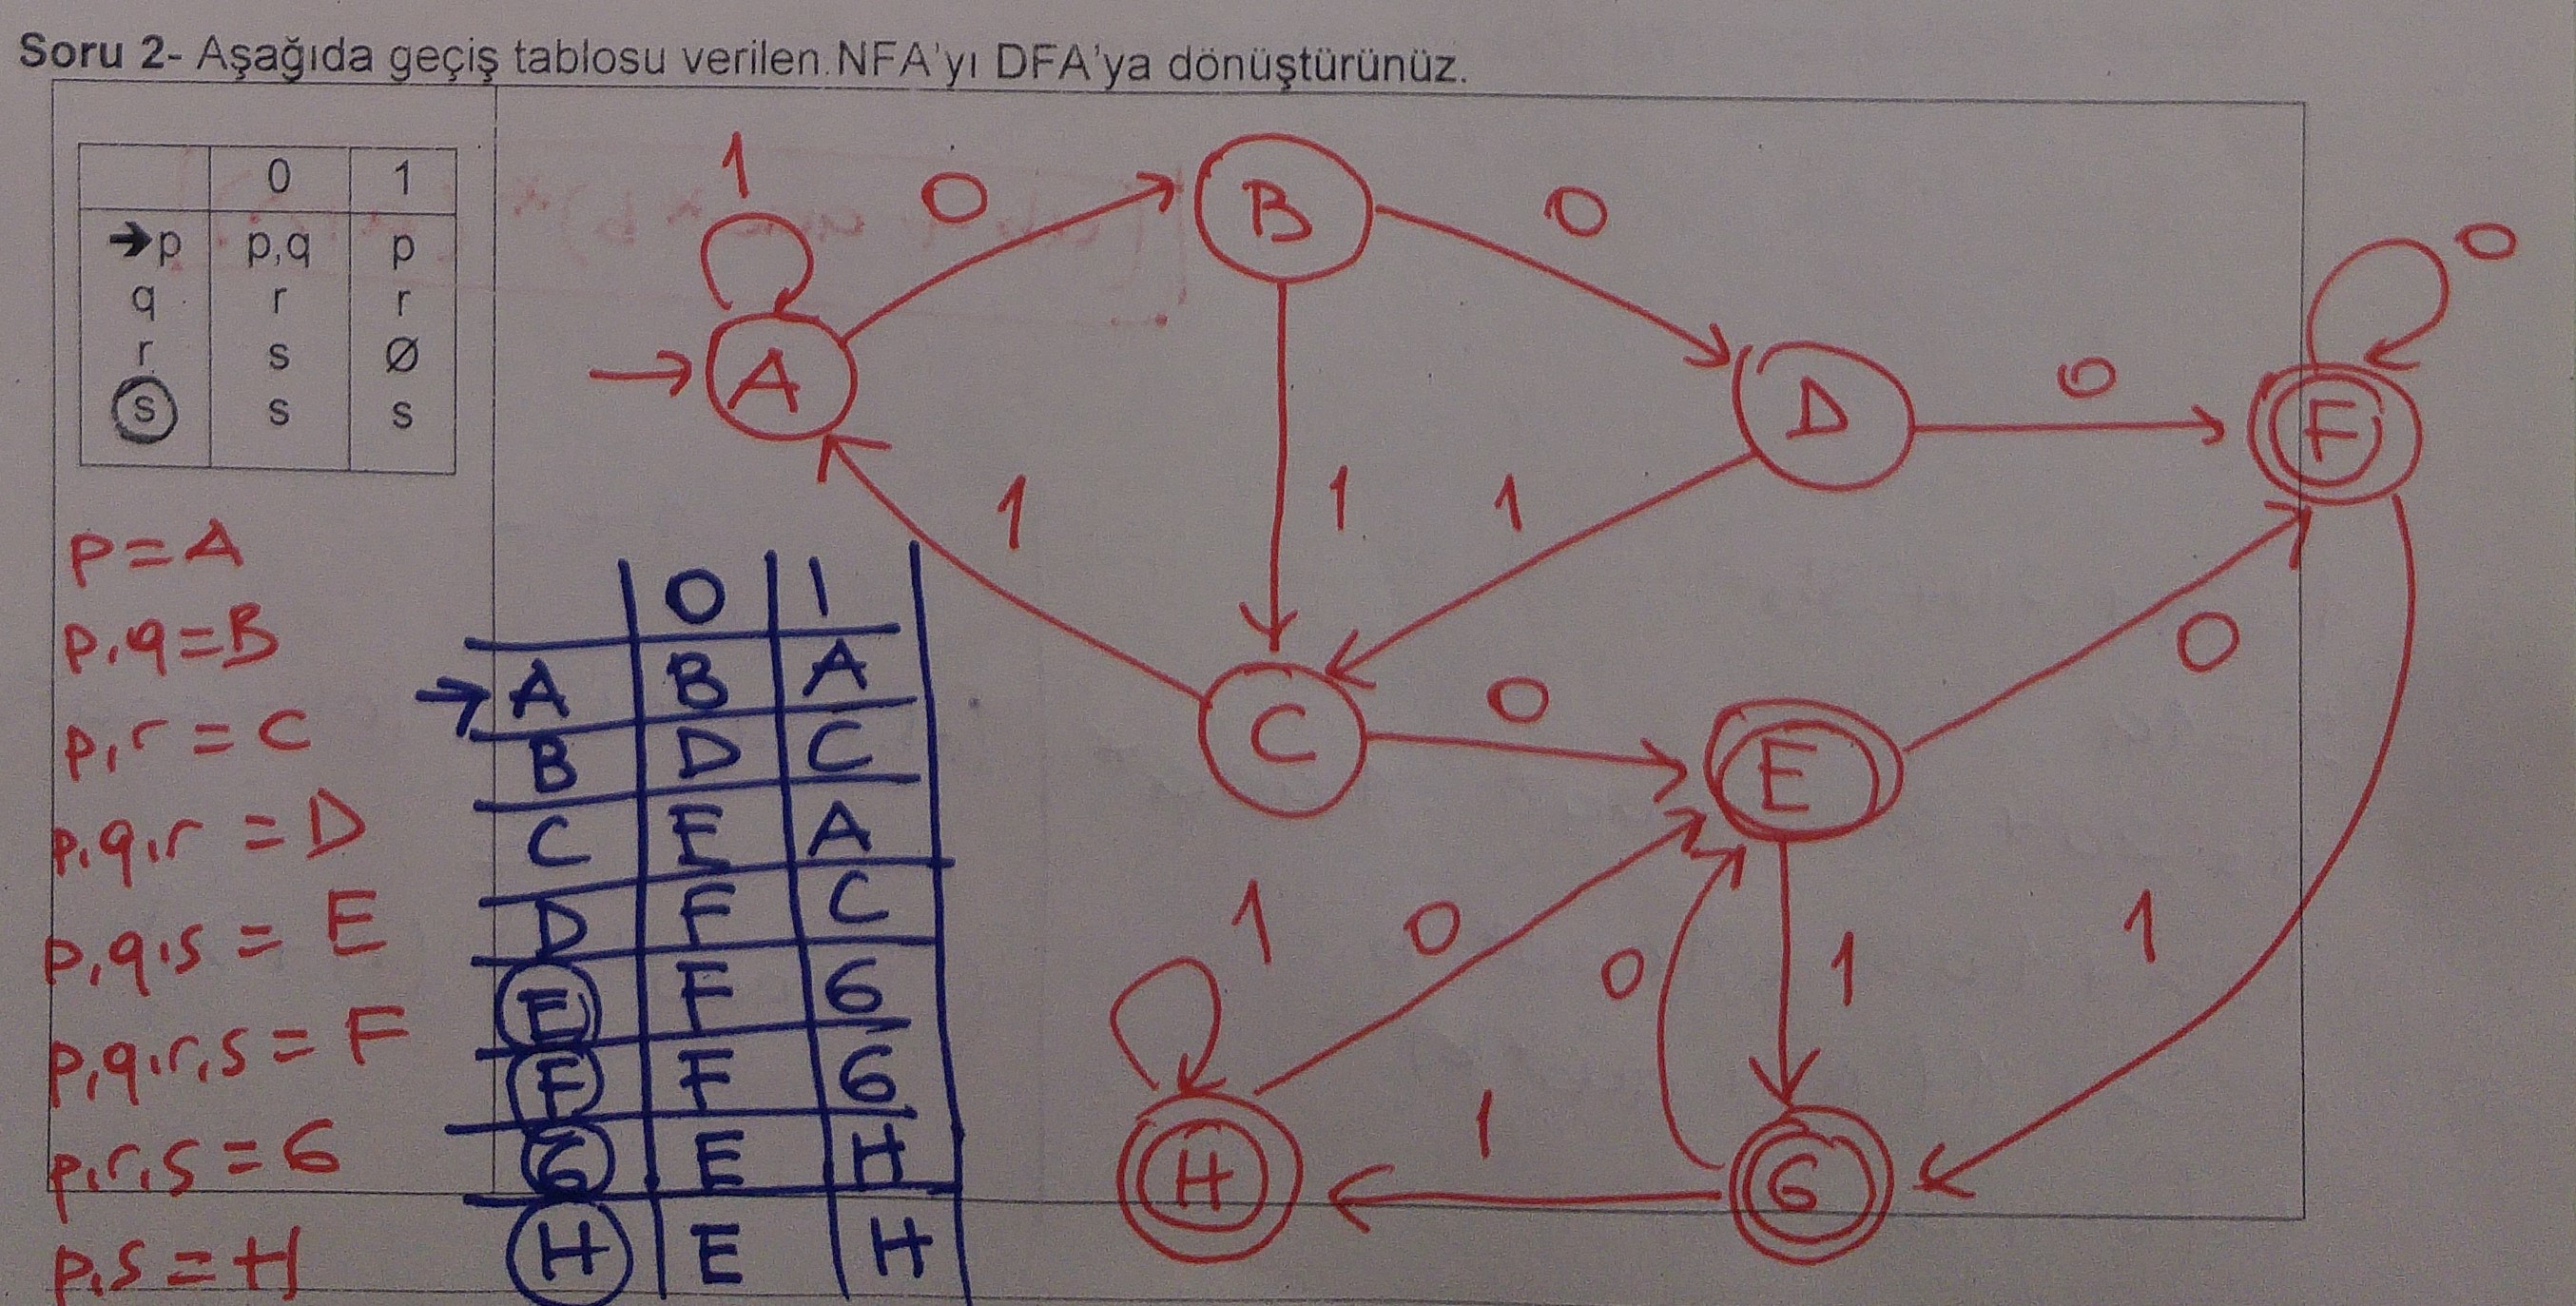 Soru 2- Aşağıda geçiş tablosu verilen NFA'yı DFA'ya dönüştürünüz.
0 1
→p p,q p
q r r
r s Ø
s s s
p=A
p,q=B
p,r=C
p,q,r=D
p,q,s=E
p,q,r,s=F
p,r,s=G
p,s=H
0 1
→A B A
B D C
C E A
D F C
E F G
F F G
G E H
H E H
1
0
B
0
0
A
D
0
F
1
1
1
0
C
0
E
1
0
0
1
1
H
1
G